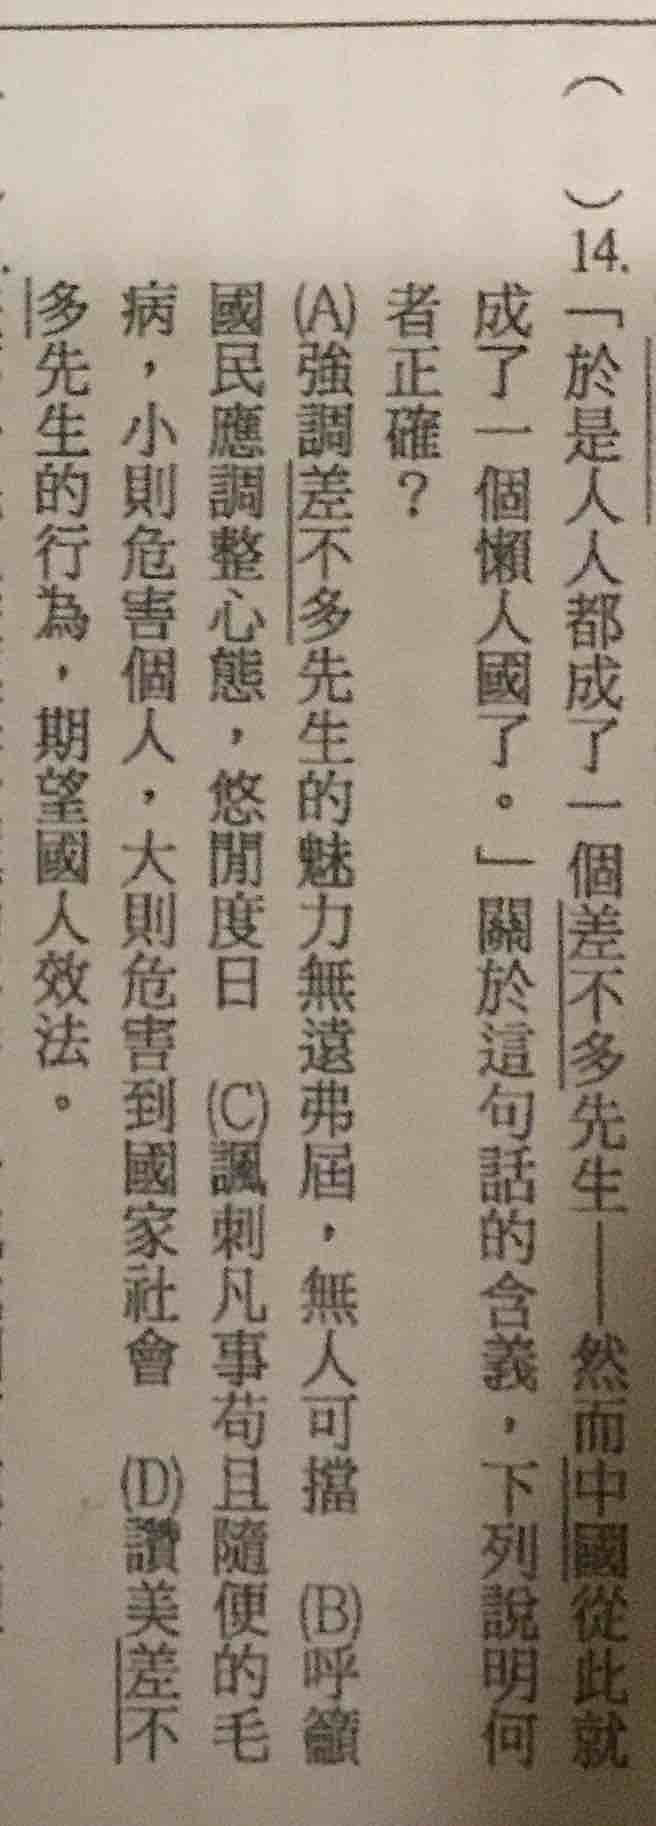 （　）14.「於是人人都成了一個差不多先生——然而中國從此就
成了一個懶人國了。」關於這句話的含義，下列說明何
者正確？
(A)強調差不多先生的魅力無遠弗屆，無人可擋　(B)呼籲
國民應調整心態，悠閒度日　(C)諷刺凡事苟且隨便的毛
病，小則危害個人，大則危害到國家社會　(D)讚美差不
多先生的行為，期望國人效法。